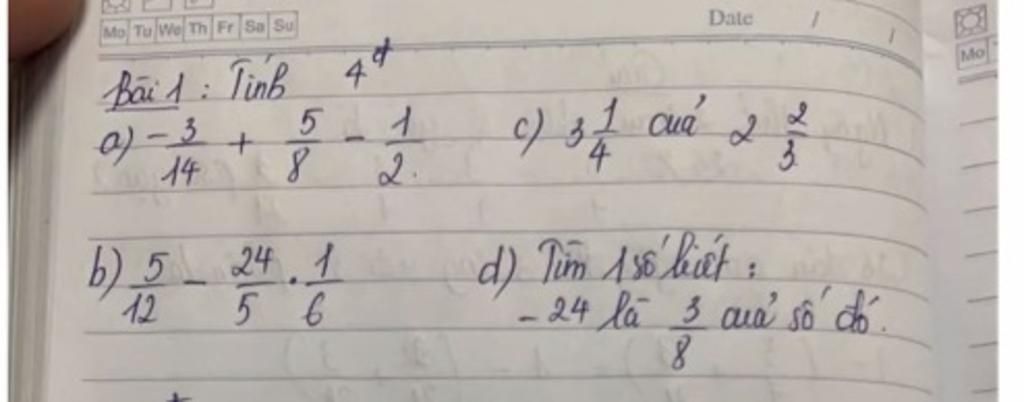 Mo Tu We Th Fr Sa Su
Date / /
Mo
Bài 1 : Tính 4đ
a) -3/14 + 5/8 - 1/2.
c) 3 1/4 của 2 2/3
b) 5/12 - 24/5 . 1/6
d) Tìm 1 số biết :
-24 là 3/8 của số đó.